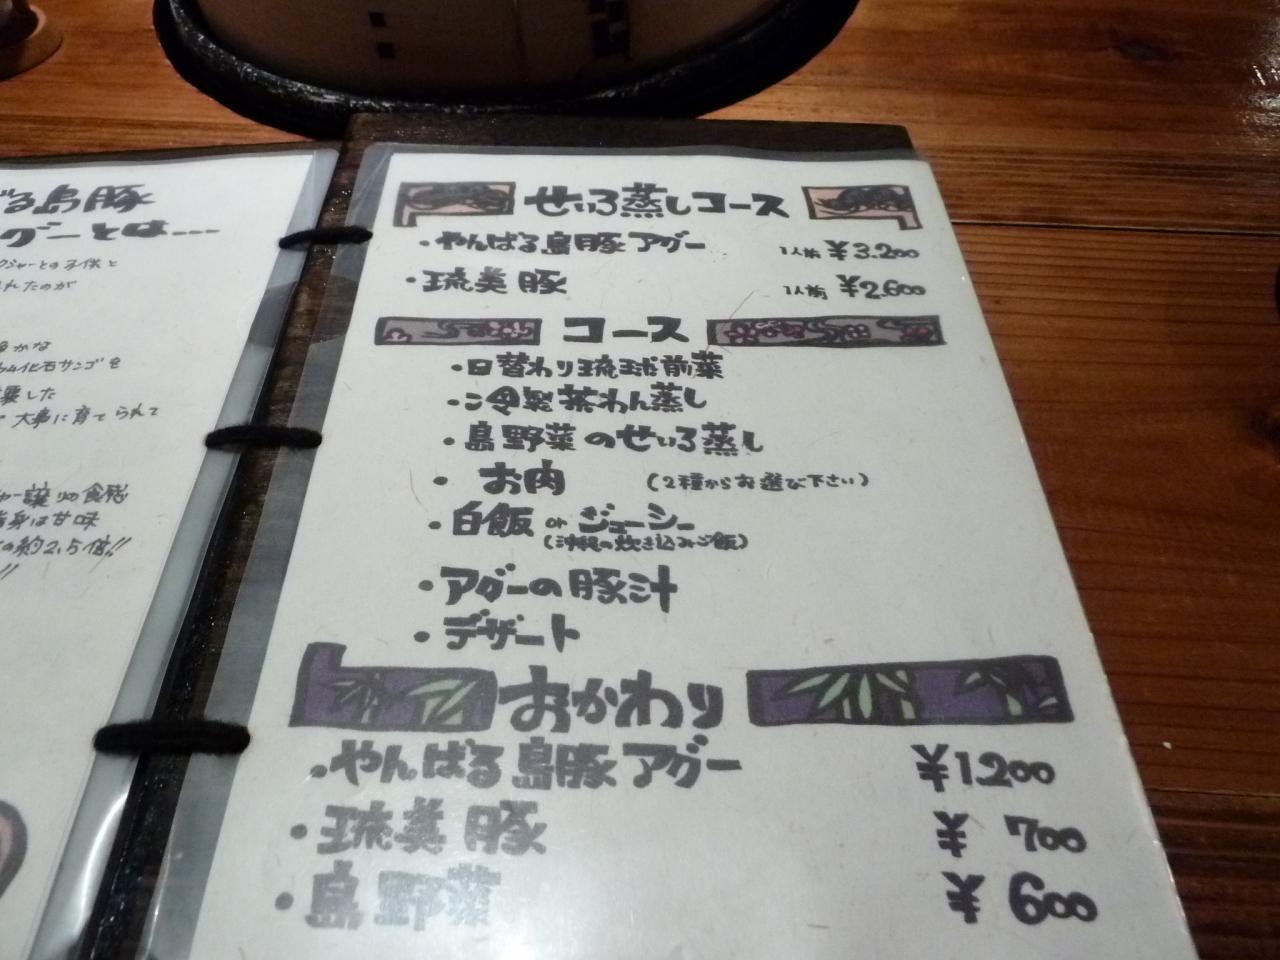 る島豚
グーとは…
ジャーとの子供と
れたのが
るかな
ウム化石サンゴを
した
大事に育てられて
ャー譲りの食感
脂身は甘味
の約2.5倍!!
せいろ蒸しコース
・やんばる島豚アグー 1人前 ¥3.200
・琉美豚 1人前 ¥2.600
コース
・日替わり琉球前菜
・冷製茶わん蒸し
・島野菜のせいろ蒸し
・お肉 (2種からお選び下さい)
・白飯 or ジューシー
(沖縄の炊き込みご飯)
・アグーの豚汁
・デザート
おかわり
・やんばる島豚アグー ¥1200
・琉美豚 ¥700
・島野菜 ¥600